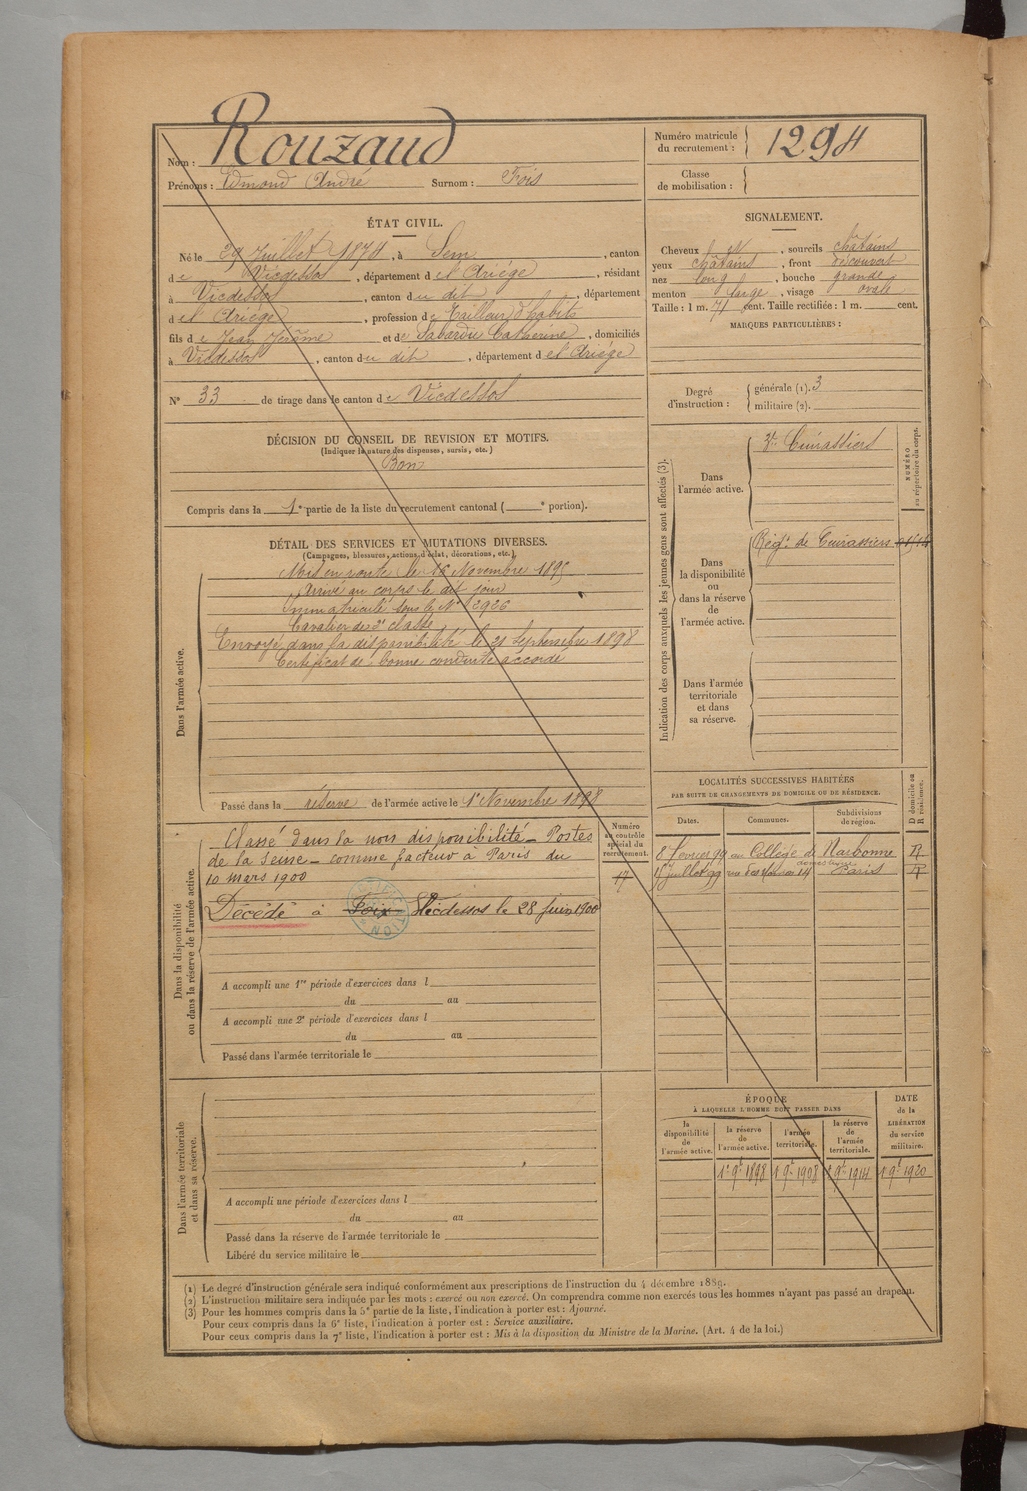 Nom : Rouzaud
Prénoms : Edmond André Surnom : Fois
Numéro matricule du recrutement : 1294
Classe de mobilisation :
ÉTAT CIVIL.
Né le 29 Juillet 1874, à Sem, canton
de Vicdessos, département de l'Ariège, résidant
à Vicdessos, canton du dit, département
de l'Ariège, profession de Tailleur d'habits
fils de Jean Jérôme et de Sabardu Catherine, domiciliés
à Vicdessos, canton du dit, département de l'Ariège
N° 33 de tirage dans le canton de Vicdessos
DÉCISION DU CONSEIL DE REVISION ET MOTIFS.
(Indiquer la nature des dispenses, sursis, etc.)
Bon
Compris dans la 1e partie de la liste du recrutement cantonal ( e portion).
SIGNALEMENT.
Cheveux , sourcils châtains
yeux châtains, front découvert
nez long, bouche grande
menton large, visage ovale
Taille : 1 m. 71 cent. Taille rectifiée : 1 m. cent.
MARQUES PARTICULIÈRES :
Degré d'instruction : générale (1). 3
militaire (2).
DÉTAIL DES SERVICES ET MUTATIONS DIVERSES.
(Campagnes, blessures, actions d'éclat, décorations, etc.)
Dans l'armée active.
Mis en route le 16 Novembre 1895
Arrivé au corps le dit jour
Immatriculé sous le N° 2926
Cavalier de 2e classe
Envoyé dans la disponibilité le 21 Septembre 1898
Certificat de bonne conduite accordé
Passé dans la réserve de l'armée active le 1er Novembre 1898
Indication des corps auxquels les jeunes gens sont affectés (3).
NUMÉRO au répertoire du corps.
Dans l'armée active.
Cuirassiers
Dans la disponibilité ou dans la réserve de l'armée active.
Régt de Cuirassiers
Dans l'armée territoriale et dans sa réserve.
Dans la disponibilité ou dans la réserve de l'armée active.
Classé dans la non disponibilité - Postes
de la Seine - comme facteur à Paris du
10 mars 1900
Décédé à Foix Vicdessos le 28 Juin 1900
Numéro au contrôle spécial du recrutement.
17
A accompli une 1re période d'exercices dans l
du au
A accompli une 2e période d'exercices dans l
du au
Passé dans l'armée territoriale le
LOCALITÉS SUCCESSIVES HABITÉES
PAR SUITE DE CHANGEMENTS DE DOMICILE OU DE RÉSIDENCE.
Dates. Communes. Subdivisions de région. D domicile ou R résidence.
8 février 99 au Collège de Narbonne R
domestique
15 juillet 99 14 Paris R
Dans l'armée territoriale et dans sa réserve.
A accompli une période d'exercices dans l
du au
Passé dans la réserve de l'armée territoriale le
Libéré du service militaire le
ÉPOQUE
À LAQUELLE L'HOMME DOIT PASSER DANS
la disponibilité de l'armée active.
la réserve de l'armée active.
l'armée territoriale.
la réserve de l'armée territoriale.
DATE de la LIBÉRATION du service militaire.
1er 9bre 1898 1er 9bre 1908 1er 9bre 1914 1er 9bre 1920
(1) Le degré d'instruction générale sera indiqué conformément aux prescriptions de l'instruction du 4 décembre 1889.
(2) L'instruction militaire sera indiquée par les mots : exercé ou non exercé. On comprendra comme non exercés tous les hommes n'ayant pas passé au drapeau.
(3) Pour les hommes compris dans la 5e partie de la liste, l'indication à porter est : Ajourné.
Pour ceux compris dans la 6e liste, l'indication à porter est : Service auxiliaire.
Pour ceux compris dans la 7e liste, l'indication à porter est : Mis à la disposition du Ministre de la Marine. (Art. 4 de la loi.)